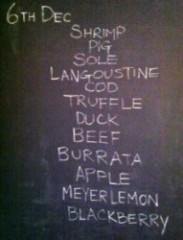 6TH DEC
SHRIMP
PIG
SOLE
LANGOUSTINE
COD
TRUFFLE
DUCK
BEEF
BURRATA
APPLE
MEYER LEMON
BLACKBERRY